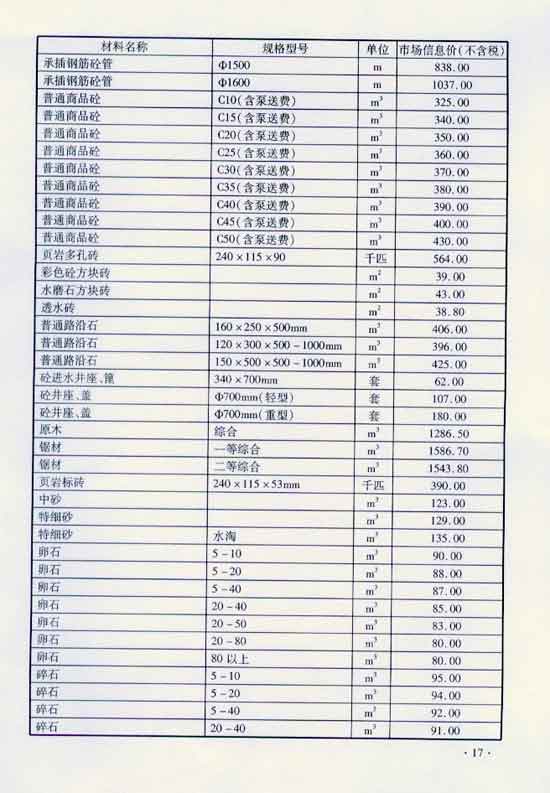 材料名称 规格型号 单位 市场信息价(不含税)
承插钢筋砼管 Φ1500 m 838.00
承插钢筋砼管 Φ1600 m 1037.00
普通商品砼 C10(含泵送费) m³ 325.00
普通商品砼 C15(含泵送费) m³ 340.00
普通商品砼 C20(含泵送费) m³ 350.00
普通商品砼 C25(含泵送费) m³ 360.00
普通商品砼 C30(含泵送费) m³ 370.00
普通商品砼 C35(含泵送费) m³ 380.00
普通商品砼 C40(含泵送费) m³ 390.00
普通商品砼 C45(含泵送费) m³ 400.00
普通商品砼 C50(含泵送费) m³ 430.00
页岩多孔砖 240×115×90 千匹 564.00
彩色砼方块砖 m² 39.00
水磨石方块砖 m² 43.00
透水砖 m² 38.80
普通路沿石 160×250×500mm m³ 406.00
普通路沿石 120×300×500-1000mm m³ 396.00
普通路沿石 150×500×500-1000mm m³ 425.00
砼进水井座、篦 340×700mm 套 62.00
砼井座、盖 Φ700mm(轻型) 套 107.00
砼井座、盖 Φ700mm(重型) 套 180.00
原木 综合 m³ 1286.50
锯材 一等综合 m³ 1586.70
锯材 二等综合 m³ 1543.80
页岩标砖 240×115×53mm 千匹 390.00
中砂 m³ 123.00
特细砂 m³ 129.00
特细砂 水淘 m³ 135.00
卵石 5-10 m³ 90.00
卵石 5-20 m³ 88.00
卵石 5-40 m³ 87.00
卵石 20-40 m³ 85.00
卵石 20-50 m³ 83.00
卵石 20-80 m³ 80.00
卵石 80以上 m³ 80.00
碎石 5-10 m³ 95.00
碎石 5-20 m³ 94.00
碎石 5-40 m³ 92.00
碎石 20-40 m³ 91.00
·17·